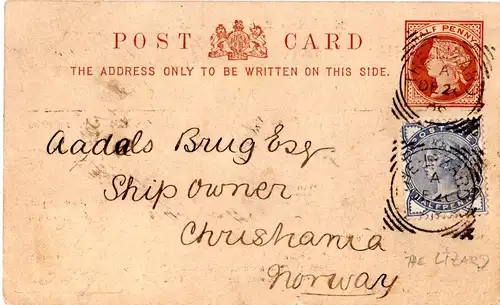 HALF PENNY
POST CARD
THE ADDRESS ONLY TO BE WRITTEN ON THIS SIDE.
Aadals Brug Esq
Ship owner
Christiania
Norway
POSTAGE
HALFPENNY
THE LIZARD